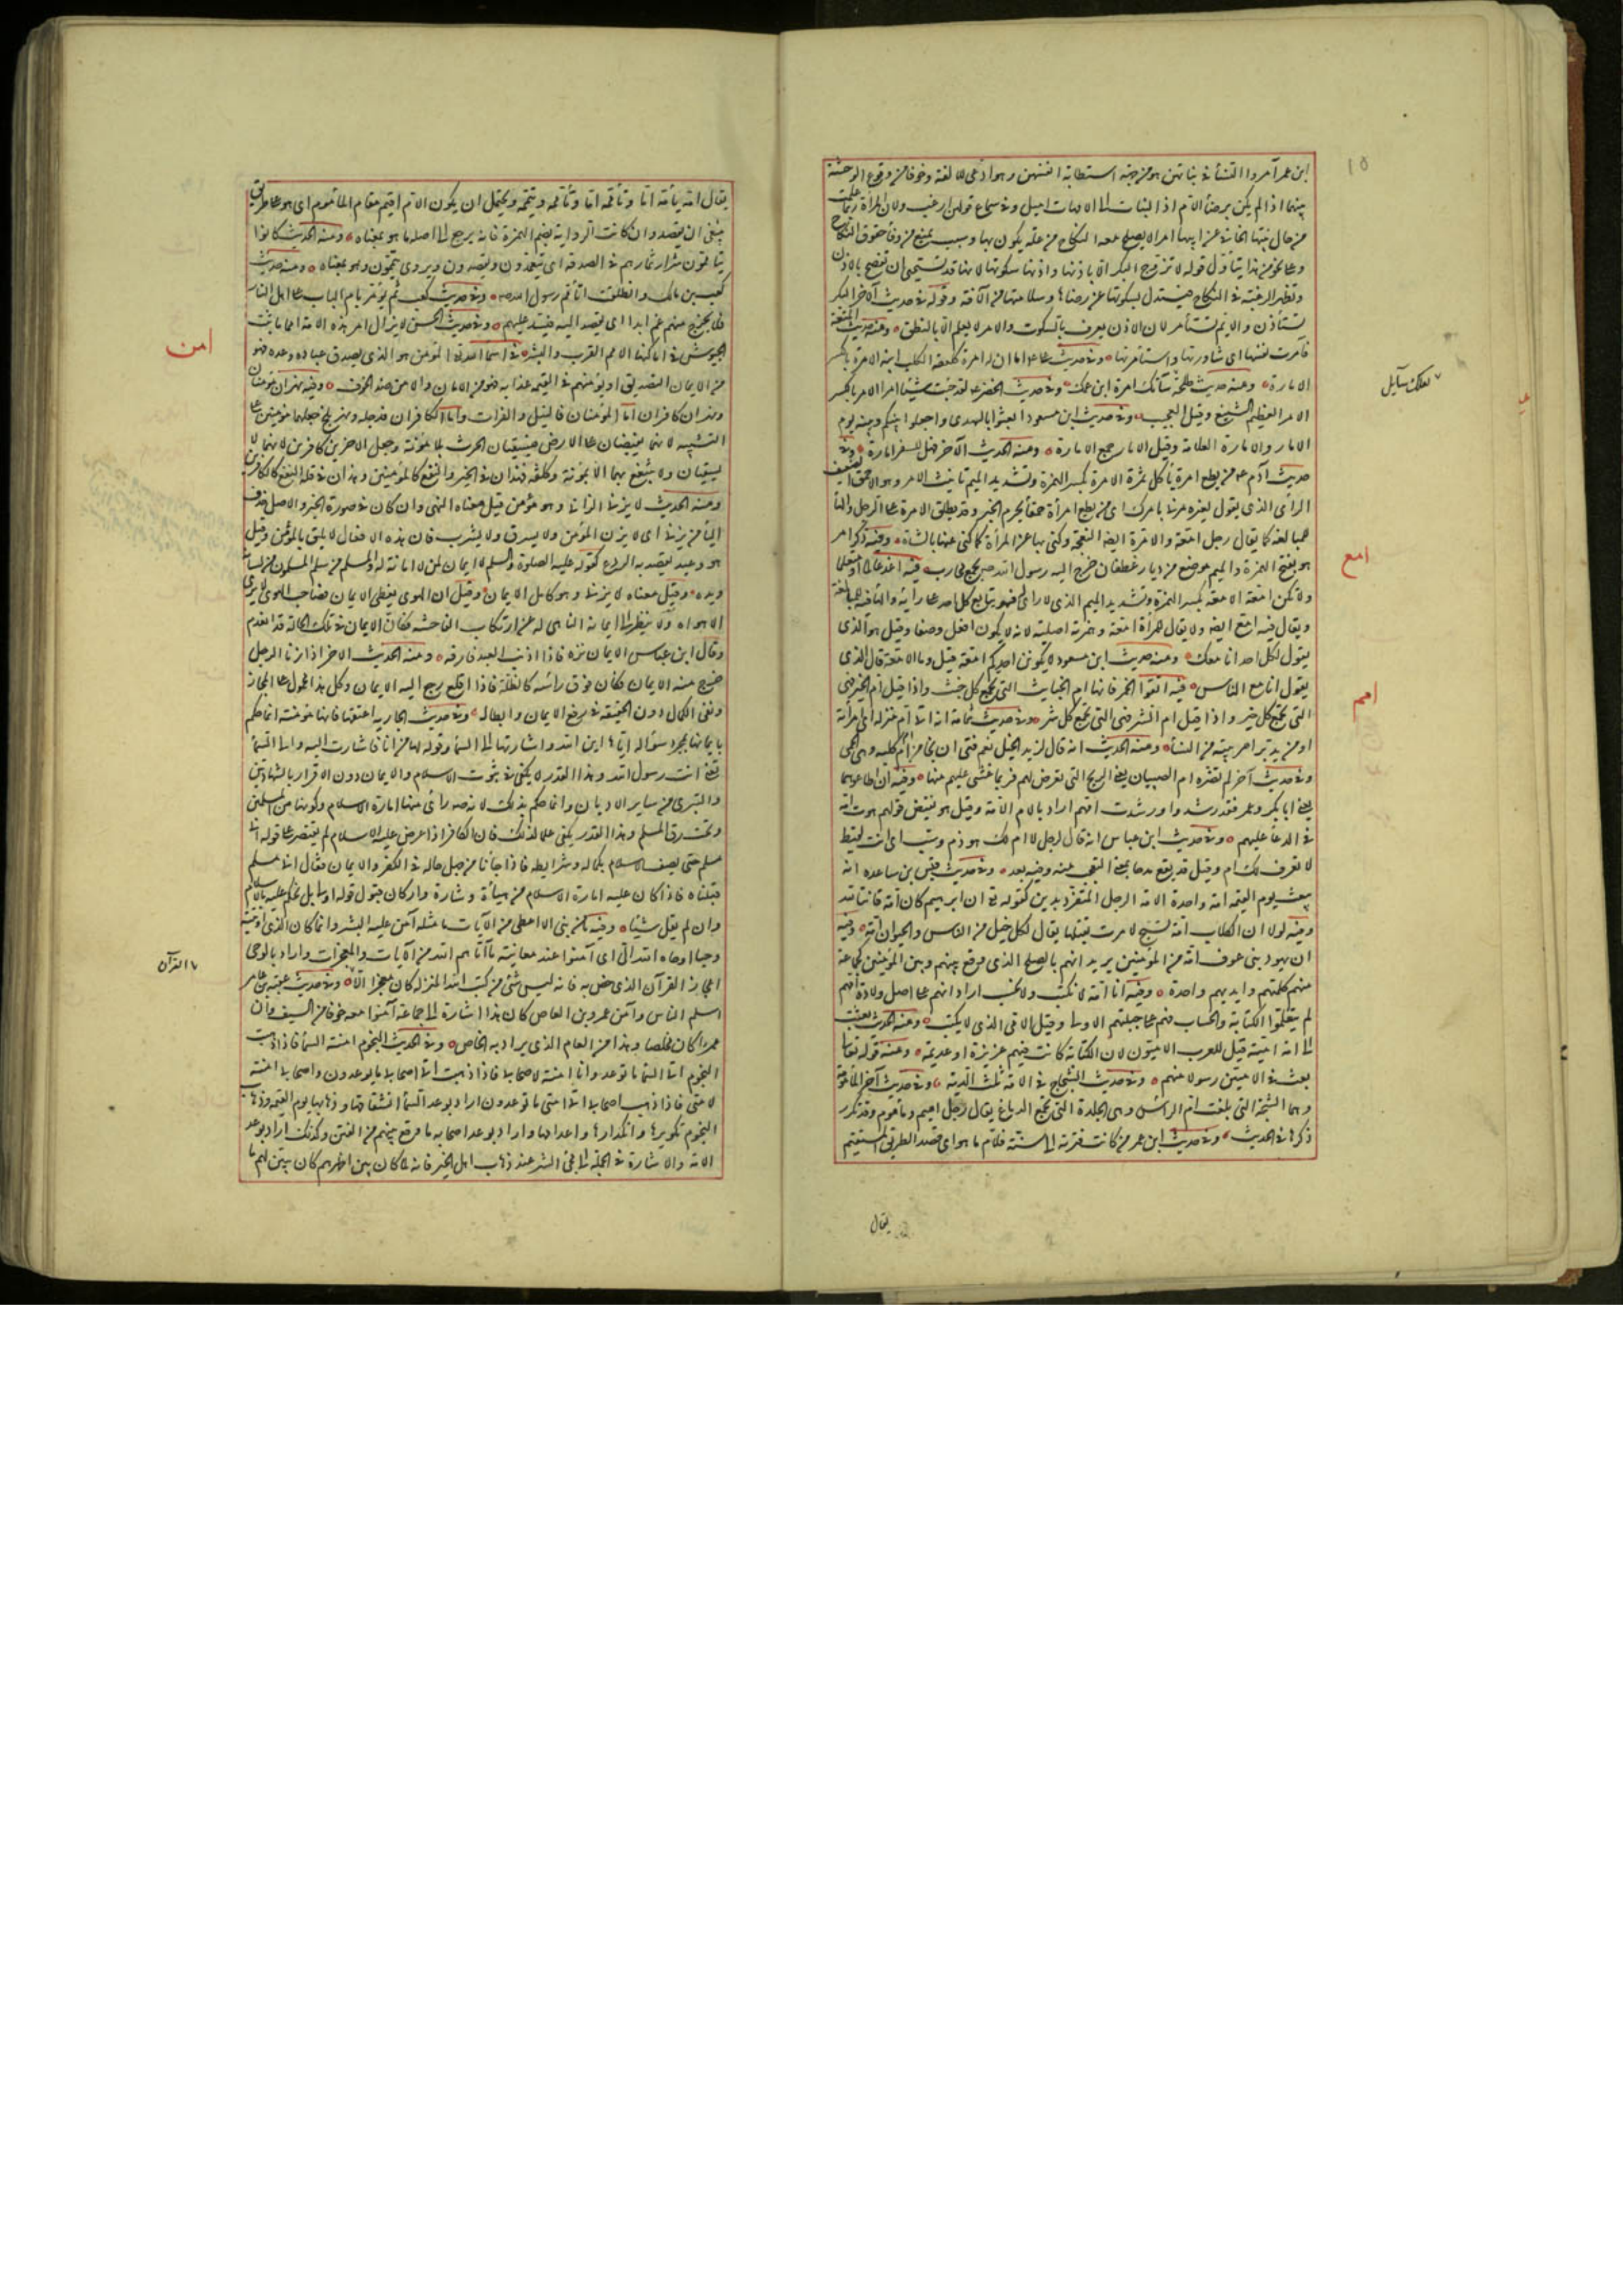 ابن عمر آمروا النساء في بناتهن هو من جهة استطابة انفسهن وهو ادعى للالفة وخوفا من وقوع الوحشة
بينهما اذا لم يكن برضاء الام اذ البنات الى الامهات اميل وفي سماع قولهن ارغب ولان المرأة ربما علمت
من حال بنتها الخافي عن ابيها امرا لا يصلح معه النكاح من علة يكون بها وسبب يمنع من وفاء حقوق النكاح
وعلى نحو من هذا يتأول قوله لا تزوج البكر الا باذنها واذنها سكوتها لانها قد تستحيي ان تفصح بالاذن
وتظهر الرغبة في النكاح فيستدل بسكوتها على رضاها وسلامتها من الآفة وقوله في حديث آخر البكر
تستأذن والايم تستأمر لان الاذن يعرف بالسكوت والامر لا يعلم الا بالنطق ومنه حديث المتعة
فآمرت نفسها اي شاورتها واستأمرتها وفي حديث علي اما ان له امرة كلعقة الكلب ابنه الامرة بالكسر
الامارة ومنه حديث طلحة ساءتك امرة ابن عمك وفي حديث الخضر لقد جئت شيئا امرا الامر بالكسر
الامر العظيم الشنيع وقيل العجب وفي حديث ابن مسعود ابعثوا بالهدي واجعلوا بينكم وبينه يوم
الامار والامارة العلامة وقيل الامار جمع الامارة ومنه الحديث الآخر فهل للسفر امارة وفي
حديث آدم من يطع امرة لا يأكل ثمرة الامرة بكسر الهمزة وتشديد الميم تأنيث الامر وهو الاحمق الضعيف
الرأي الذي يقول لغيره مرني بامرك اي من يطع امرأة حمقاء يحرم الخير وقد يطلق الامرة على الرجل والتاء
للمبالغة كما يقال رجل امعة والامرة ايضا النعجة وكنى بها عن المرأة كما كنى عنها بالشاة وفيه ذكر امر
هو بفتح الهمزة والميم موضع من ديار غطفان خرج اليه رسول الله لجمع محارب فيه اغد عالما او متعلما
ولا تكن امعة الامعة بكسر الهمزة وتشديد الميم الذي لا رأي له فهو يتابع كل احد على رأيه والتاء فيه للمبالغة
ويقال فيه امع ايضا ولا يقال للمرأة امعة وهمزته اصلية لانه لا يكون افعل وصفا وقيل هو الذي
يقول لكل احد انا معك ومنه حديث ابن مسعود لا يكونن احدكم امعة قيل وما الامعة قال الذي
يقول انا مع الناس فيه اتقوا الخمر فانها ام الخبائث التي تجمع كل خبث واذا قيل ام الخير فهي
التي تجمع كل خير واذا قيل ام الشر فهي التي تجمع كل شر وفي حديث ثمامة انه اتى ام منزله اي امرأته
او من يدبر امر بيته من النساء ومنه الحديث انه قال لزيد الخيل نعم فتى ان نجا من ام كلبة وهي الحمى
وفي حديث آخر لم تضره ام الصبيان يعني الريح التي تعرض لهم فربما غشي عليهم منها وفيه ان اطاعوهما
يعني ابا بكر وعمر فقد رشدوا ورشدت امهم اراد بالام الامة وقيل هو نقيض قولهم هوت امه
في الدعاء عليهم وفي حديث ابن عباس انه قال لرجل لا ام لك هو ذم وسب اي انت لقيط
لا تعرف لك ام وقيل قد يقع مدحا بمعنى التعجب منه وفيه بعد وفي حديث قس بن ساعدة انه
يبعث يوم القيمة امة واحدة الامة الرجل المتفرد بدين كقوله تع ان ابراهيم كان امة قانتا لله
وفيه لولا ان الكلاب امة تسبح لامرت بقتلها يقال لكل جيل من الناس والحيوان امة وفيه
ان يهود بني عوف امة من المؤمنين يريد انهم بالصلح الذي وقع بينهم وبين المؤمنين كجماعة
منهم كلمتهم وايديهم واحدة وفيه انا امة لا نكتب ولا نحسب اراد انهم على اصل ولادة امهم
لم يتعلموا الكتابة والحساب فهم على جبلتهم الاولى وقيل الامي الذي لا يكتب ومنه الحديث بعثت
الى امة امية قيل للعرب الاميون لان الكتابة كانت فيهم عزيزة او عديمة ومنه قوله تعالى
بعث في الاميين رسولا منهم وفي حديث الشجاج في الآمة ثلث الدية وفي حديث آخر المأمومة
وهما الشجة التي بلغت ام الرأس وهي الجلدة التي تجمع الدماغ يقال رجل اميم ومأموم وقد تكرر
ذكرها في الحديث وفي حديث ابن عمر من كانت فترته الى سنة فلأم ما هو اي قصد الطريق المستقيم
١٥
لعلك سآيل
امع
امم
يقال
يقال امه يأمه اما وتأممه اما وتأممه وتيممه ويحتمل ان يكون الام اقيم مقام المأموم اي هو على طريق
ينبغي ان يقصد وان كانت الرواية بضم الهمزة فانه يرجع الى اصله ما هو بمعناه ومنه الحديث كانوا
يتأممون شرار ثمارهم في الصدقة اي يتعمدون ويقصدون ويروى يتيممون وهو بمعناه ومنه حديث
كعب بن مالك وانطلقت اتأمم رسول الله وفي حديث كعب ثم يؤمر بام الباب على اهل النار
فلا يخرج منهم غم ابدا اي يقصد اليه فيسد عليهم وفي حديث الحسن لا يزال امر هذه الامة امما ما ثبتت
الجيوش في اماكنها الامم القرب واليسر في اسماء الله المؤمن هو الذي يصدق عباده وعده فهو
من الايمان التصديق او يؤمنهم في القيمة عذابه فهو من الامان والامن ضد الخوف وفيه نهران مؤمنان
ونهران كافران اما المؤمنان فالنيل والفرات واما الكافران فدجلة ونهر بلخ جعلهما مؤمنين على
التشبيه لانهما يفيضان على الارض فيسقيان الحرث بلا مؤونة وجعل الاخرين كافرين لانهما لا
يسقيان ولا ينتفع بهما الا بمؤنة وكلفة فهذان في الخير والنفع كالمؤمنين وهذان في قلة النفع كالكافرين
ومنه الحديث لا يزني الزاني وهو مؤمن قيل معناه النهي وان كان في صورة الخبر والاصل حذف
الياء من يزني اي لا يزن المؤمن ولا يسرق ولا يشرب فان هذه الافعال لا يليق بالمؤمن وقيل
هو وعيد يقصد به الردع كقوله عليه الصلوة والسلم لا ايمان لمن لا امانة له والمسلم من سلم المسلمون من لسانه
ويده وقيل معناه لا يزني وهو كامل الايمان وقيل ان الهوى يغطي الايمان فصاحب الهوى لا يرى
الا هواه ولا ينظر الى ايمانه الناهي له عن ارتكاب الفاحشة فكأن الايمان في تلك الحالة قد انعدم
وقال ابن عباس الايمان نزه فاذا اذنب العبد فارقه ومنه الحديث الآخر اذا زنا الرجل
خرج منه الايمان فكان فوق رأسه كالظلة فاذا اقلع رجع اليه الايمان وكل هذا محمول على المجاز
ونفي الكمال دون الحقيقة في رفع الايمان وابطاله وفي حديث الجارية اعتقها فانها مؤمنة انما حكم
بايمانها بمجرد سؤاله اياها اين الله واشارتها الى السماء وقوله لها من انا فاشارت اليه والى السماء
يعني انت رسول الله وهذا القدر لا يكفي في ثبوت الاسلام والايمان دون الاقرار بالشهادتين
والتبري من ساير الاديان وانما حكم بذلك لانه صم رأى منها امارة الاسلام وكونها من المسلمين
وتحت رق المسلم وهذا القدر يكفي علما لذلك فان الكافر اذا عرض عليه الاسلام لم يقتصر على قوله اني
مسلم حتى يصف الاسلام بكماله وشرايطه فاذا جاءنا من جهل حاله في الكفر والايمان فقال اني مسلم
قبلناه فاذا كان عليه امارة الاسلام من هيأة وشارة ودار كان قبول قوله اولى بل نحكم عليه بالاسلام
وان لم يقل شيئا وفيه ما من نبي الا اعطي من الآيات ما مثله آمن عليه البشر وانما كان الذي اوتيته
وحيا اوحاه الله الي اي آمنوا عند معاينة ما آتاهم الله من الآيات والمعجزات واراد بالوحي
اعجاز القرآن الذي خص به فانه ليس شيء من كتب الله المنزلة كان معجزا الا وفي حديث عقبة بن عامر
اسلم الناس وآمن عمرو بن العاص كان هذا اشارة الى جماعة آمنوا معه خوفا من السيف وان
عمروا كان مخلصا وهذا من العام الذي يراد به الخاص وفي الحديث النجوم امنة السماء فاذا ذهبت
النجوم اتى السماء ما توعد وانا امنة لاصحابي فاذا ذهبت اتى اصحابي ما يوعدون واصحابي امنة
لامتي فاذا ذهب اصحابي اتى امتي ما توعدون اراد بوعد السماء انشقاقها وذهابها يوم القيمة وذهاب
النجوم تكويرها وانكدارها واعدامها واراد بوعد اصحابه ما وقع بينهم من الفتن وكذلك اراد بوعد
الامة والاشارة في الجملة الى مجيء الشر عند ذهاب اهل الخير فانه لما كان بين اظهرهم كان يبين لهم ما
امن
القرآن